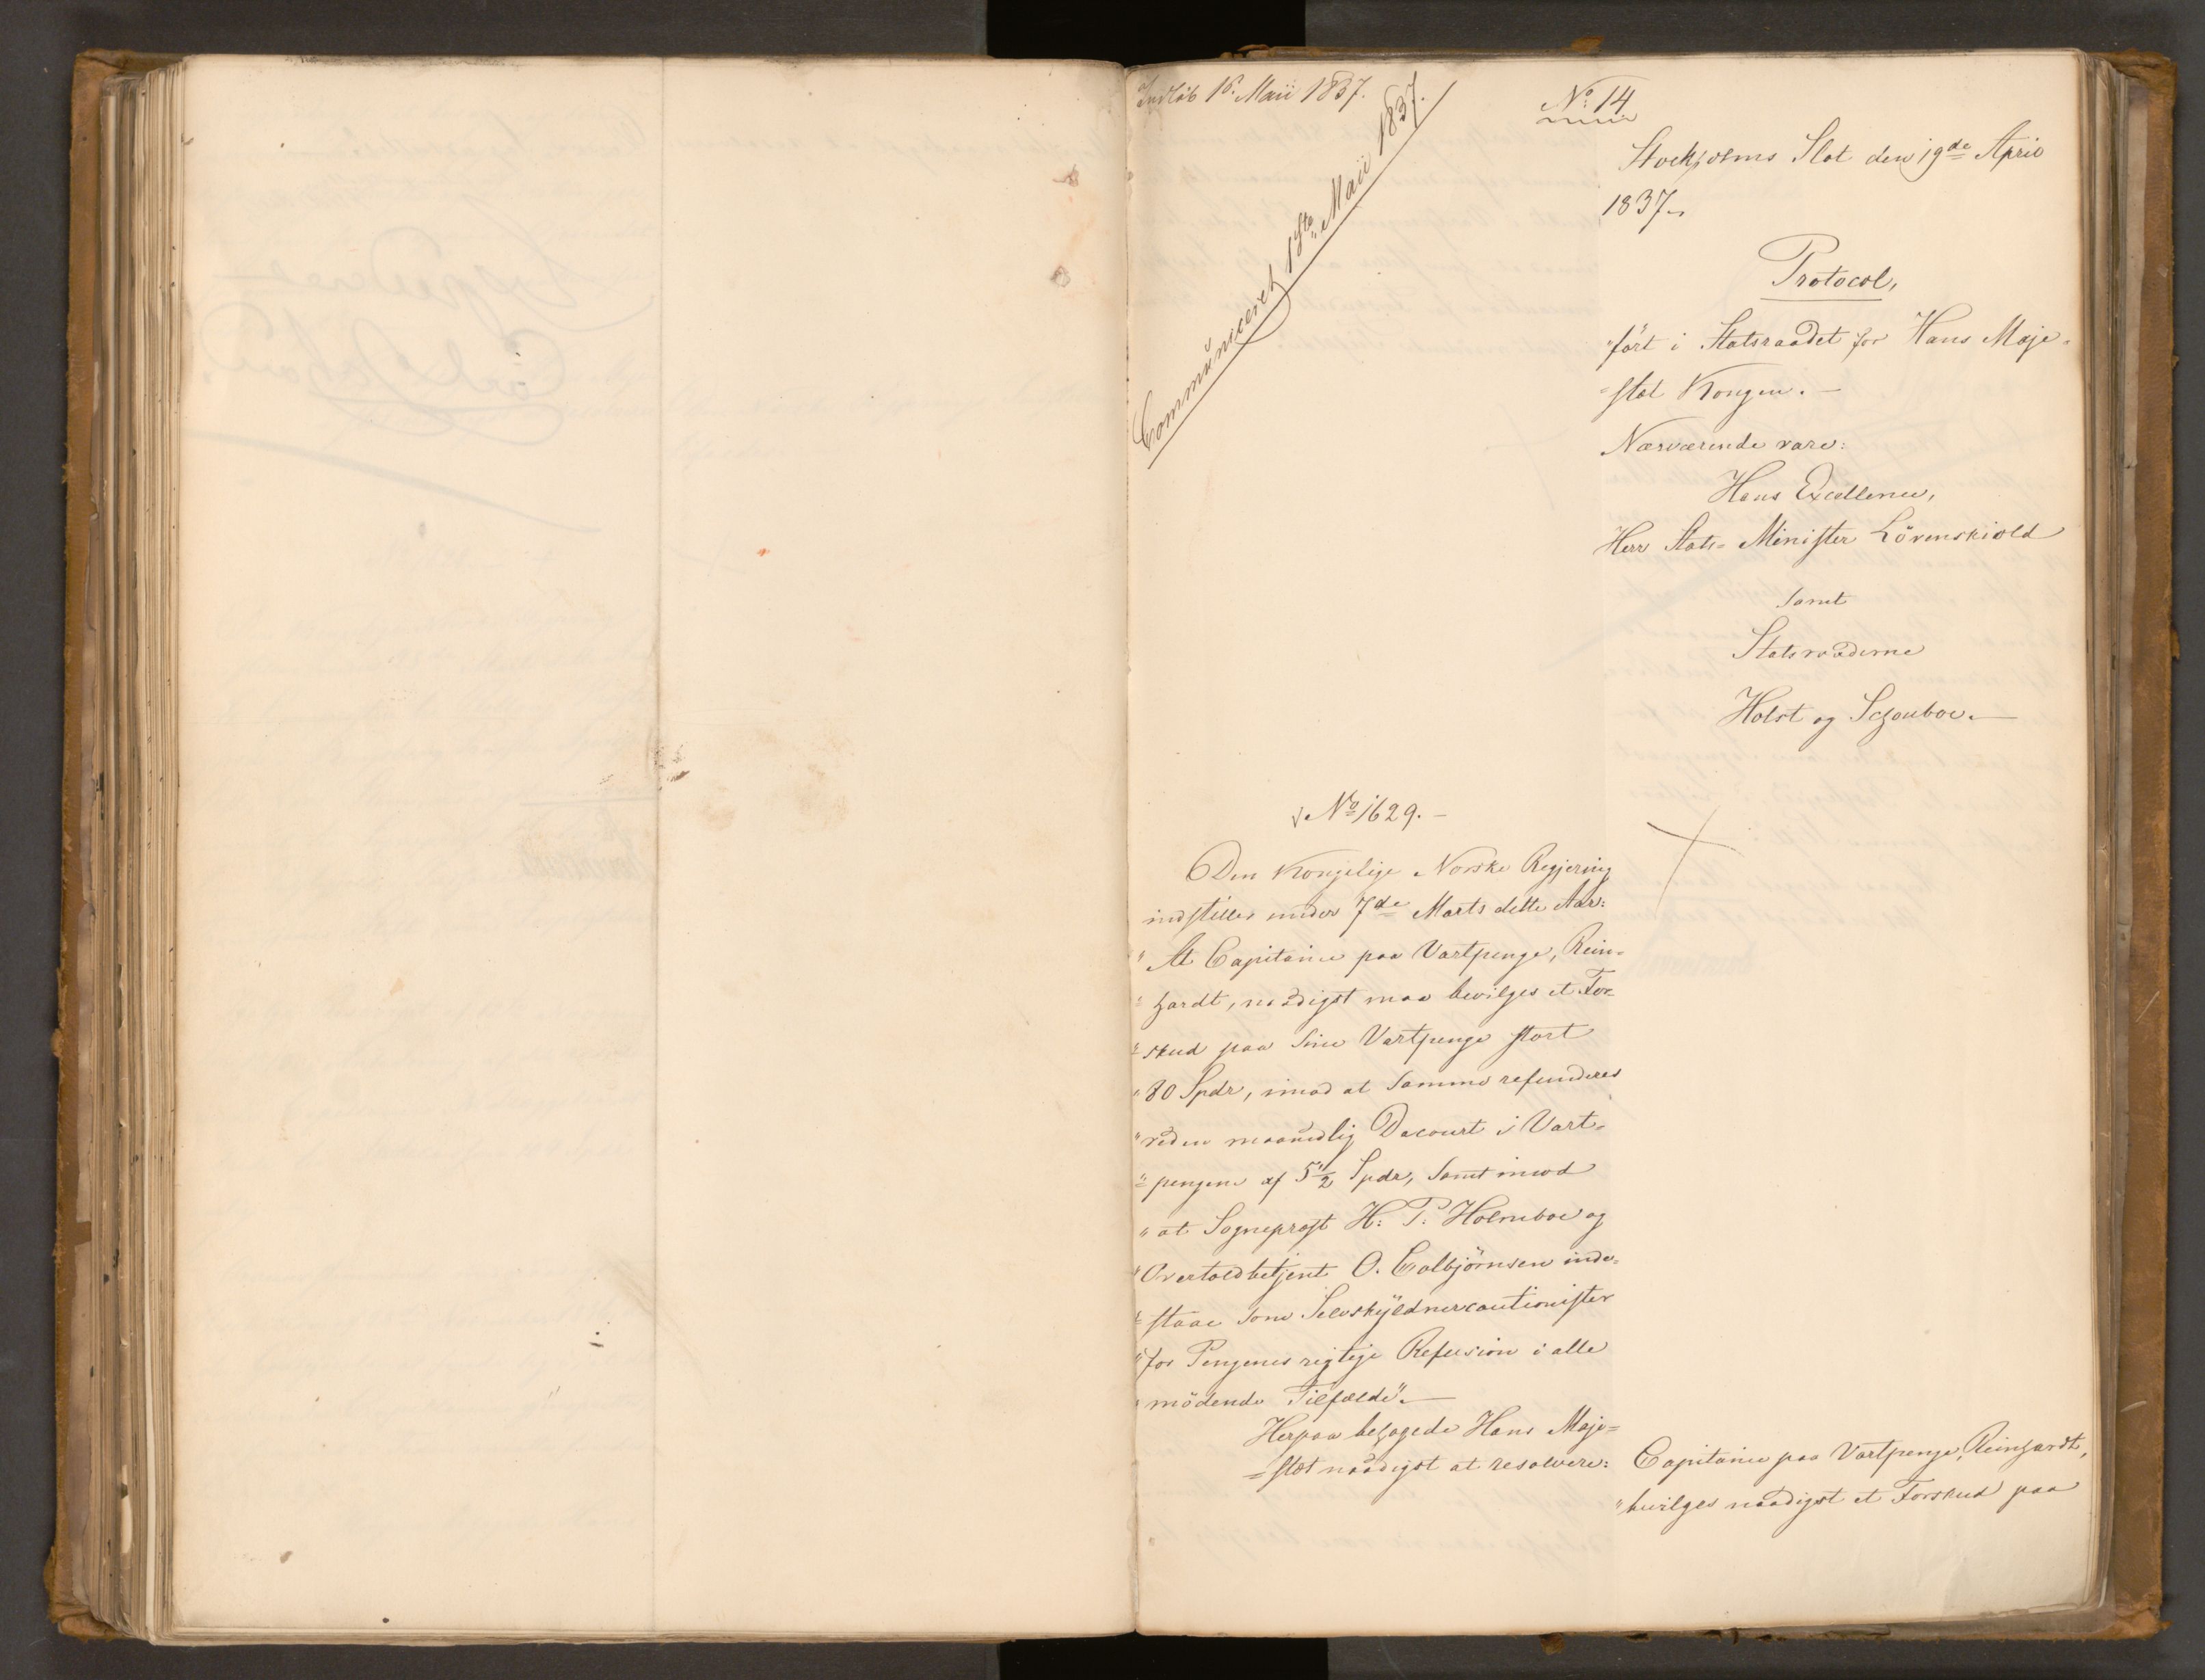 Indløb 1ste Maii 1837.
Communiceret 1ste Maii 1837.
No: 14
Stockholms Slot den 19de April
1837.
Protocol,
ført i Statsraadet for Hans Maje-
-stæt Kongen. -
Nærværende vare:
Hans Excellence,
Herr Stats-Minister Lövenskiold
samt
Statsraaderne
Holst og Schouboe. -
No 1629. -
Den Kongelige Norske Regjering
indstiller under 7de Marts dette Aar:
"At Capitaine paa Vartpenge, Rein-
"hardt, naadigst maa bevilges et For-
"skud paa sine Vartpenge stort
"80 Spdr, imod at samme refunderes
"ved en maanedlig Decourt i Vart-
"pengene af 5 1/2 Spdr, samt imod
"at Sogneprest H: P: Holmboe og
"Overtoldbetjent O. Colbjörnsen inde-
"staae som Selvskyldnercautionister
"for Pengenes rigtige Refusion i alle
"mödende Tilfælde". -
Herpaa behagede Hans Maje-
-stæt naadigst at resolvere:
Capitaine paa Vartpenge, Reinhardt,
"bevilges naadigst et Forskud paa